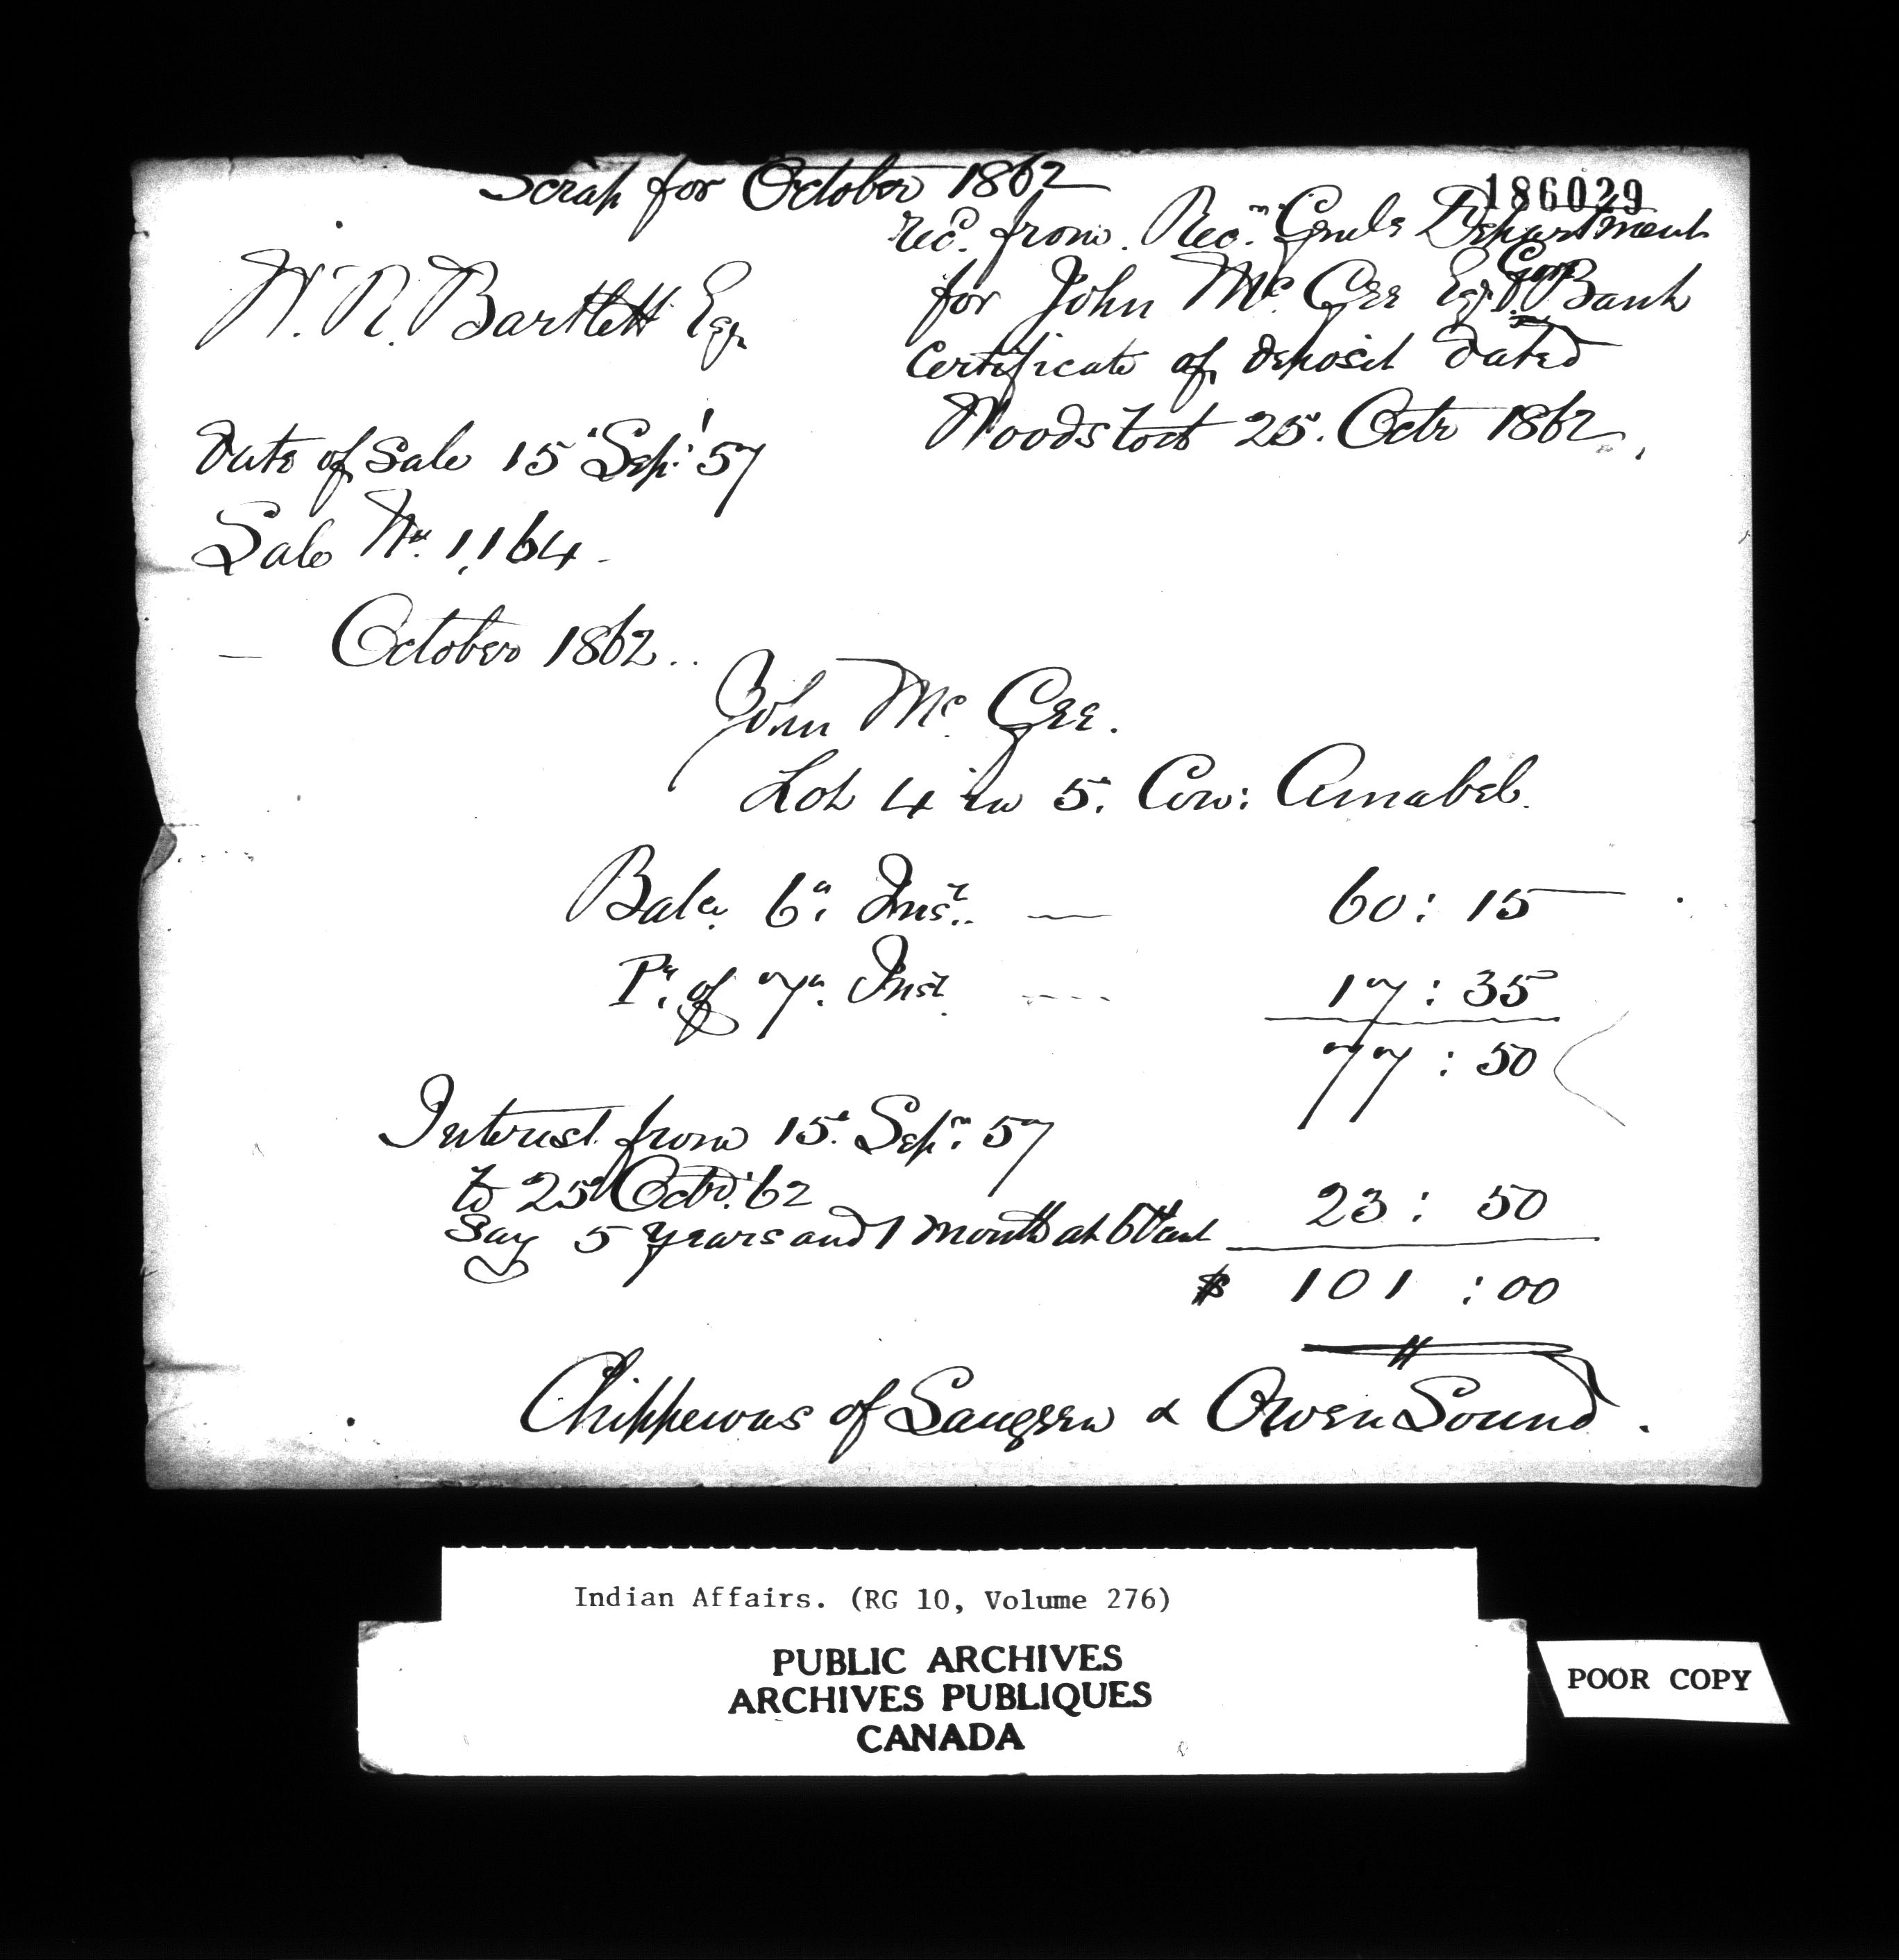 Scrap for October 1862
186029
W. R. Bartlett Esqr
recd. from Recr. Genls Department
for John Mc Gee Esqr. Com Bank
Certificate of deposit dated
Woodstock 25. Octr 1862.
Date of Sale 15 Sepr 57
Sale No. 1,164 -
— October 1862..
John Mc Gee.
Lot 4 in 5. Con: Amabel.
Bale. 6th Inst. — 60 : 15
Pt. of 7th. Inst. ---- 17 : 35
77 : 50
Interest from 15th Sepr. 57
to 25th Octr. 62
Say 5 years and 1 month at 6 per cent 23 : 50
$ 101 : 00
Chippewas of Saugeen & Owen Sound.
Indian Affairs. (RG 10, Volume 276)
PUBLIC ARCHIVES
ARCHIVES PUBLIQUES
CANADA
POOR COPY